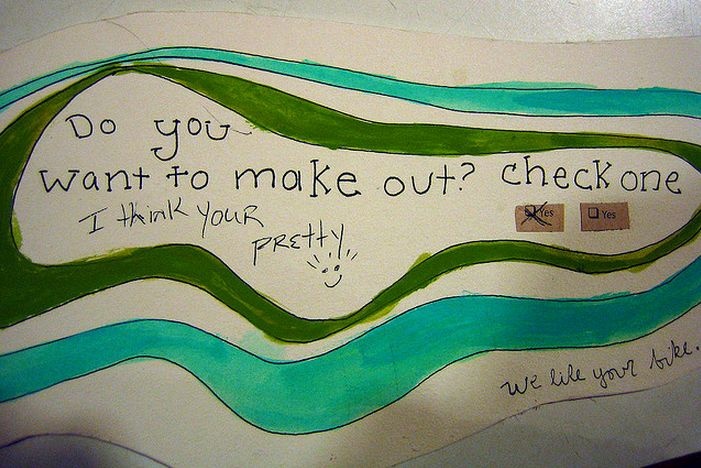 Do you
want to make out? check one
Yes Yes
I think your
pretty
we like your bike.